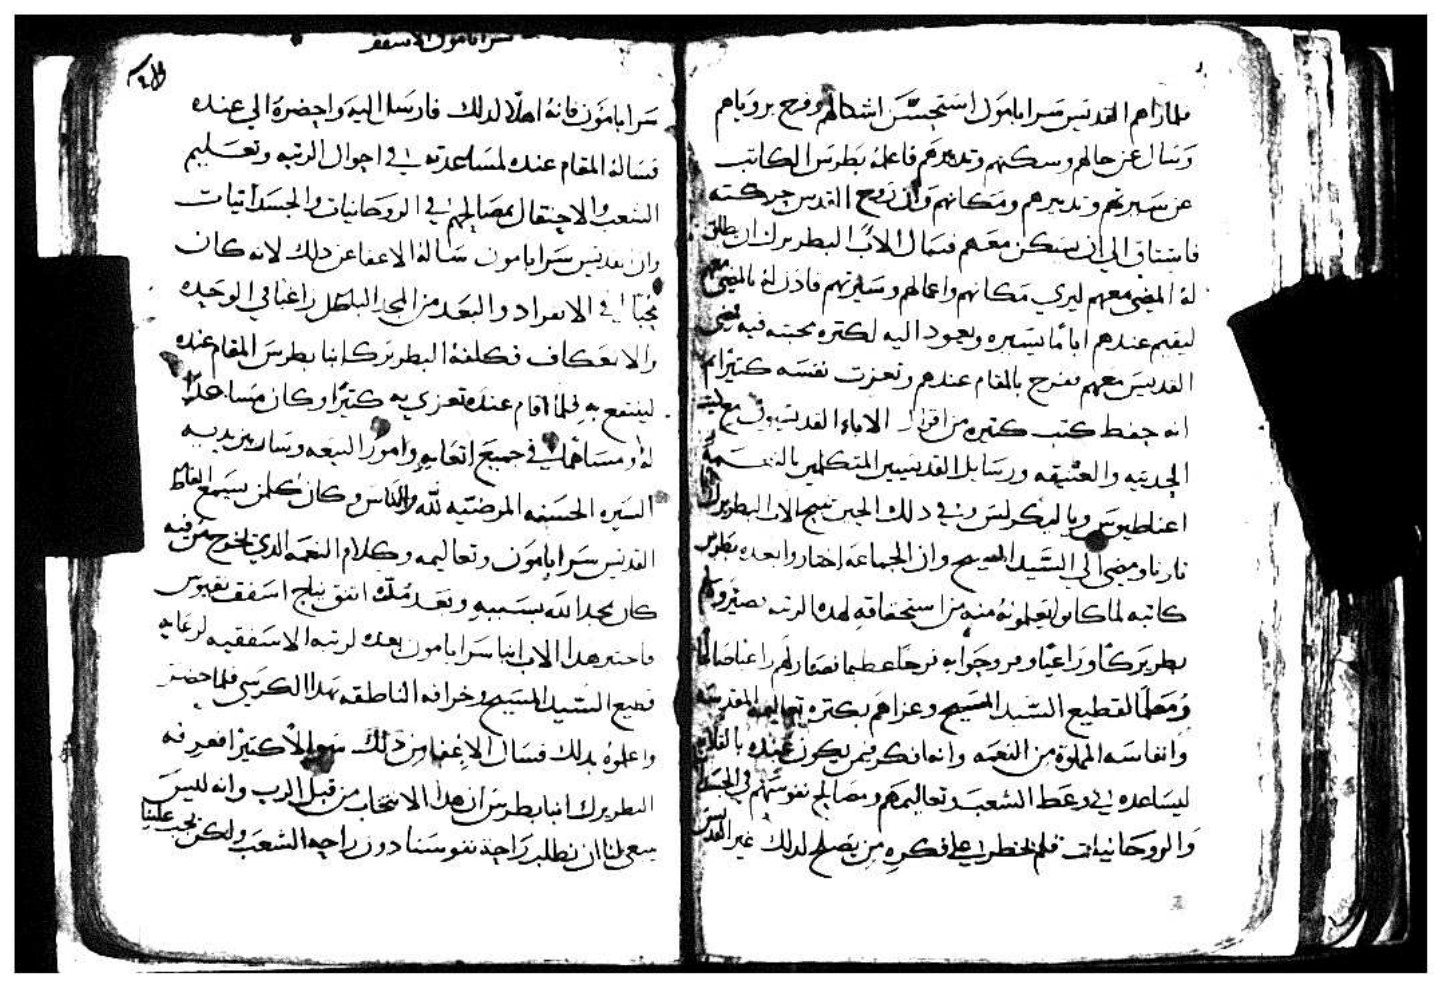 فلما راهم القديس سرابامون استحسن اشكالهم وفرح بروياهم
وسال عن حالهم وسكنهم وتدبيرهم فاعلمه بطرس الكاتب
عن سيرتهم وتدبيرهم ومكانهم وان روح القدس حركته
فاشتاق الي ان يسكن معهم فسال الاب البطريرك ان يطلق
له المضي معهم ليري مكانهم واعمالهم وسيرتهم فاذن له بالمضي معهم
ليقيم عندهم اياما يسيره ويعود اليه لكثره محبته فيه فمضي
القديس معهم ففرح بالمقام عندهم وتعزت نفسه كتيرا ثم
انه حفظ كتب كتيره من اقوال الاباء القديسيين مع كتب
الحديثه والعتيقه ورسايل القديسين المتكلمين بالنعمه
اغناطيوس وفي ذلك الحين تنيح الاب البطريرك انبا
تاونا ومضي الي السيد المسيح وان الجماعه اختاروا بعده بطرس
كاتبه لما كانوا يعلمونه منه من استحقاقه لهده الرتبه فصيروه لهم
بطريركا وراعيا وفرحوا به فرحا عظيما فصار لهم راعيا صالحا
ومعلما لقطيع السيد المسيح وعزاهم بكتره تعاليمه المقدسه
وانفاسه المملوة من النعمه وانه افكر فيمن يكون عنده بالقلايه
ليساعده في وعظ الشعب وتعاليمهم ومصالح نفوسهم في الجسدانيات
والروحانيات فلم يخطر علي فكره من يصلح لدلك غير القديس
سرابامون الاسقف
سرابامون فانه اهلا لدلك فارسل اليه واحضره الي عنده
فساله المقام عنده لمساعدته في احوال الرتبه وتعليم
الشعب والاحتفال بمصالحهم في الروحانيات والجسدانيات
وان القديس سرابامون ساله الاعفا عن دلك لانه كان
محبا في الانفراد والبعد من المجد الباطل راغبا في الوحيده
والانعكاف فكلفه البطريرك انبا بطرس المقام عنده
لينتفع به فلما اقام عنده تعزي به كتيرا وكان مساعدا
له ومساهما في جميع اتعابه وامور البيعه وسار بتزيديه
السيره الحسنه المرضيه لله والناس وكان كلمن يسمع الفاظ
القديس سرابامون وتعاليمه وكلام النعمه الدي يخرج من فيه
كان يمجد الله بسببه وبعد مده اتفق نياح اسقف نقيوس
فاختير هدا الاب انبا سرابامون بعده لرتبه الاسقفيه لرعايه
قطيع السيد المسيح وخرافه الناطقه بهدا الكرسي فلما حضر
واعلموه بدلك فسال الاعفا من ذلك سوالا كتيرا فعرفه
البطريرك انبا بطرس ان هدا الانتخاب من قبل الرب وانه ليس
يسعي لنا ان نطلب راحة نفوسنا دون راحه الشعب ولكن يجب علينا